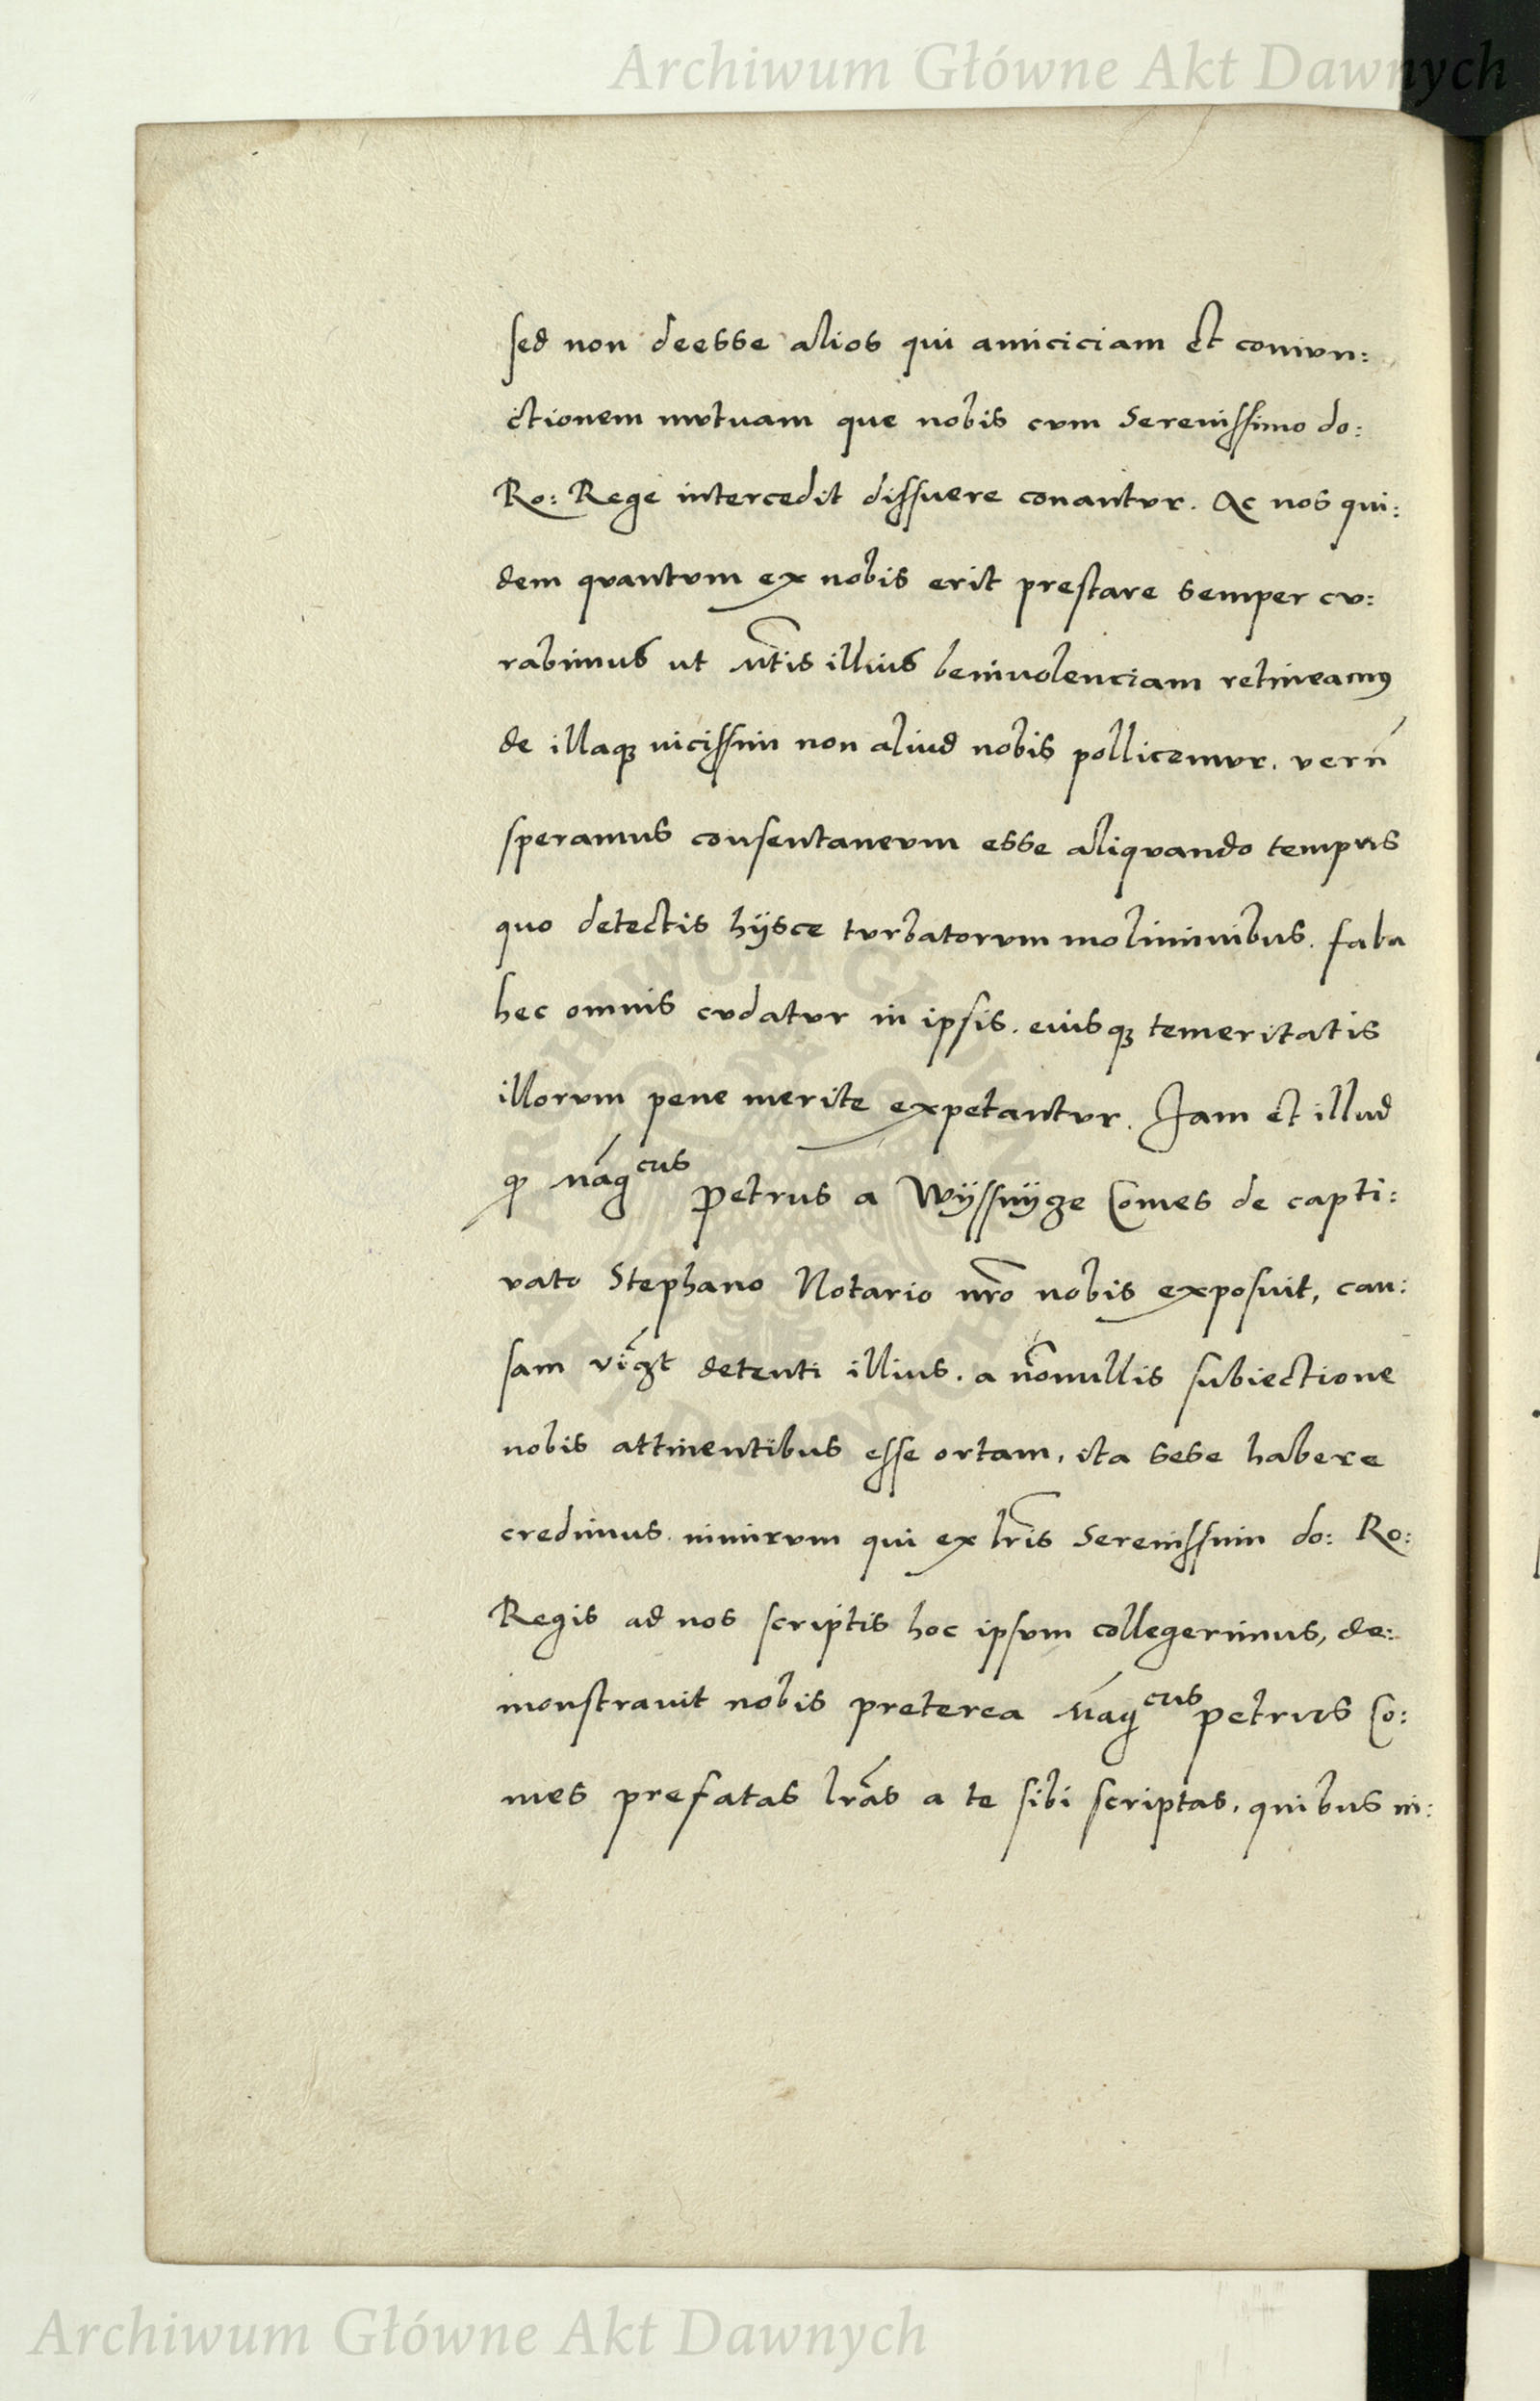 Archiwum Główne Akt Dawnych
sed non deesse alios qui amiciciam et conivn:
ctionem mvtuam que nobis cvm Serenissimo do:
Ro: Rege intercedit dissuere conantvr. Ac nos qui:
dem qvantvm ex nobis erit prestare semper cv:
rabimus ut mtis illius beniuolenciam retineamꝰ
de illaqꝫ uicissim non aliud nobis pollicemvr. vern̄
speramus consentanevm esse aliqvando tempus
quo detectis hÿsce tvrbatorvm moliminibus. faba
hec omnis cvdatvr in ipsis. eiusqꝫ temeritatis
illorvm pene merite expetantvr. Jam et illud
ꝙ mag̃cus Petrus a Wÿssnÿgze Comes de capti:
vato Stephano Notario nr̃o nobis exposuit, cau:
sam detenti illius. a nõnullis subiectione
nobis attinentibus esse ortam, ita sese habere
credimus. nimirvm qui ex lr̃is Serenissimi do: Ro:
Regis ad nos scriptis hoc ipsvm collegerimus, de:
monstrauit nobis preterea mag̃cus petrus Co:
mes prefatas lr̃as a te sibi scriptas. quibus ni:
Archiwum Główne Akt Dawnych